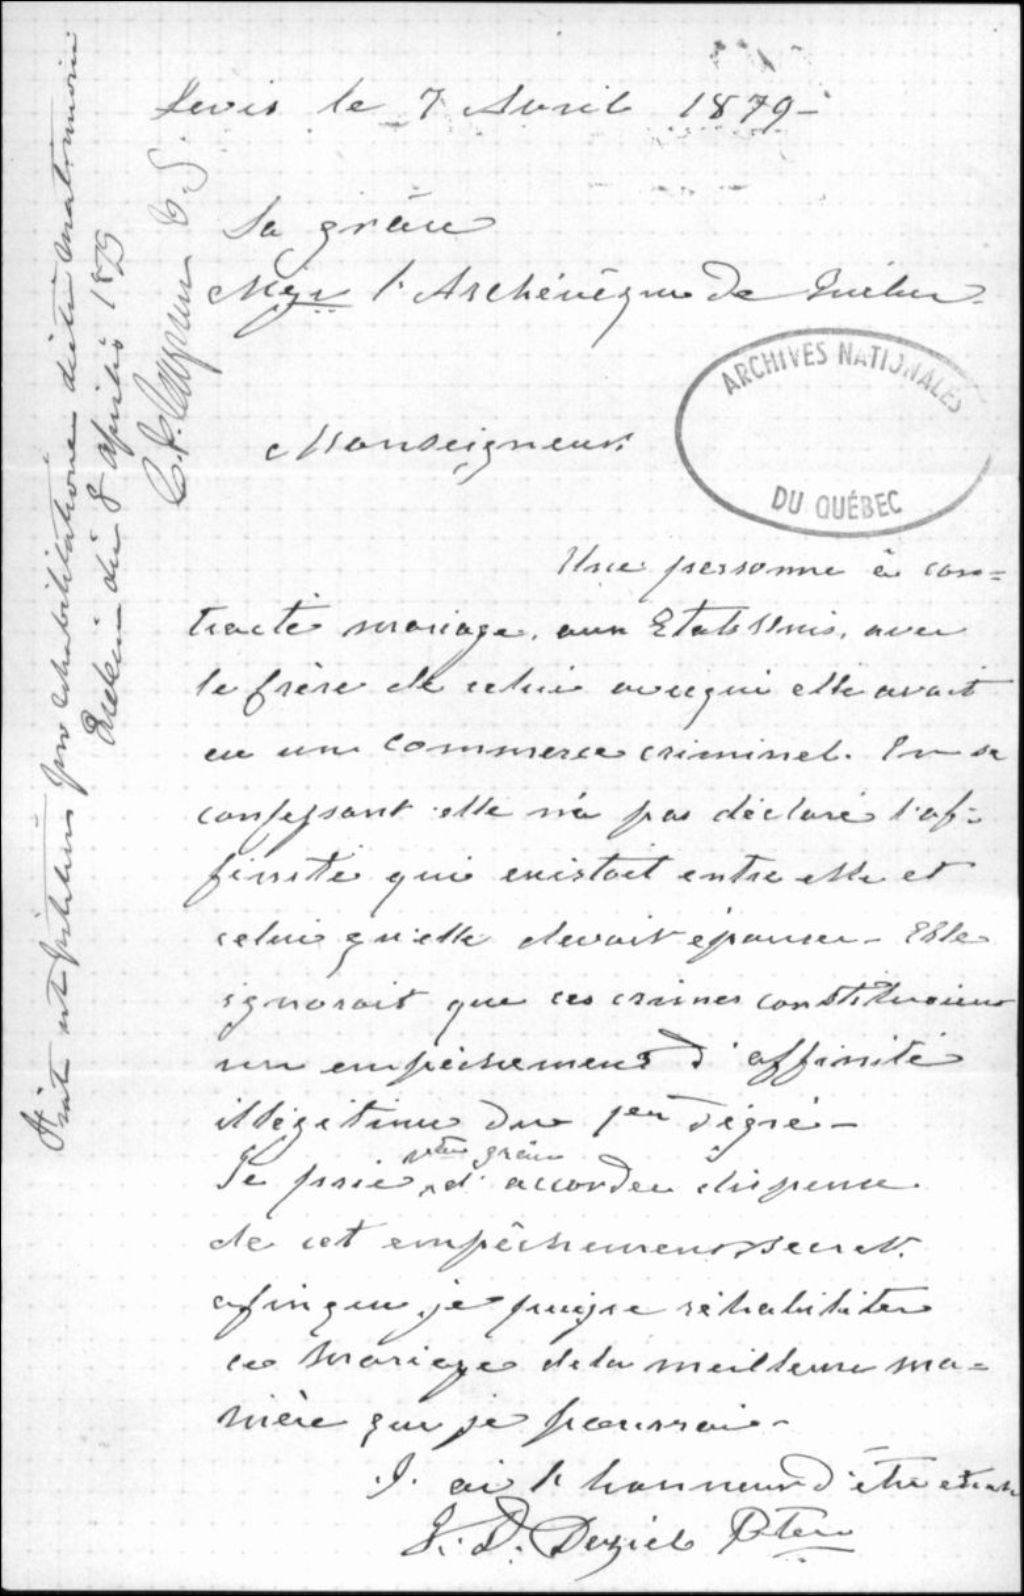 Levis le 7 Avril 1879 -
Sa grâce
Mgr l'Archévêque de Québec.
ARCHIVES NATIONALES
DU QUÉBEC
Monseigneur
Une personne à con=
tracté mariage, aux Etats Unis, avec
le frère de celui avec qui elle avait
eu un commerce criminel. En se
confessant elle n'a pas déclaré l'af-
finité qui existait entre elle et
celui qu'elle devait épouser - Elle
ignorait que ces crimes constituaient
un empêchement d'affinité
illégitime du 1er dégré -
Je prie vtre grâce d'accorder dispense
de cet empêchement secret,
afin que je puisse réhabiliter
ce mariage de la meilleure ma=
nière que je pourrai -
J. ai l'honneur d'être etc
J. D. Deziel Ptre
Fiat ut petitur pro rehabilitatione dicti matrimonii
die 8 aprilis 1879